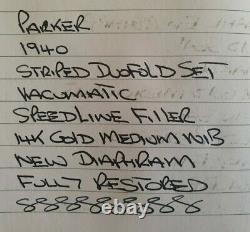 PARKER
1940
STRIPED DUOFOLD SET
VACUMATIC
SPEEDLINE FILLER
14K GOLD MEDIUM NIB
NEW DIAPHRAM
FULLY RESTORED